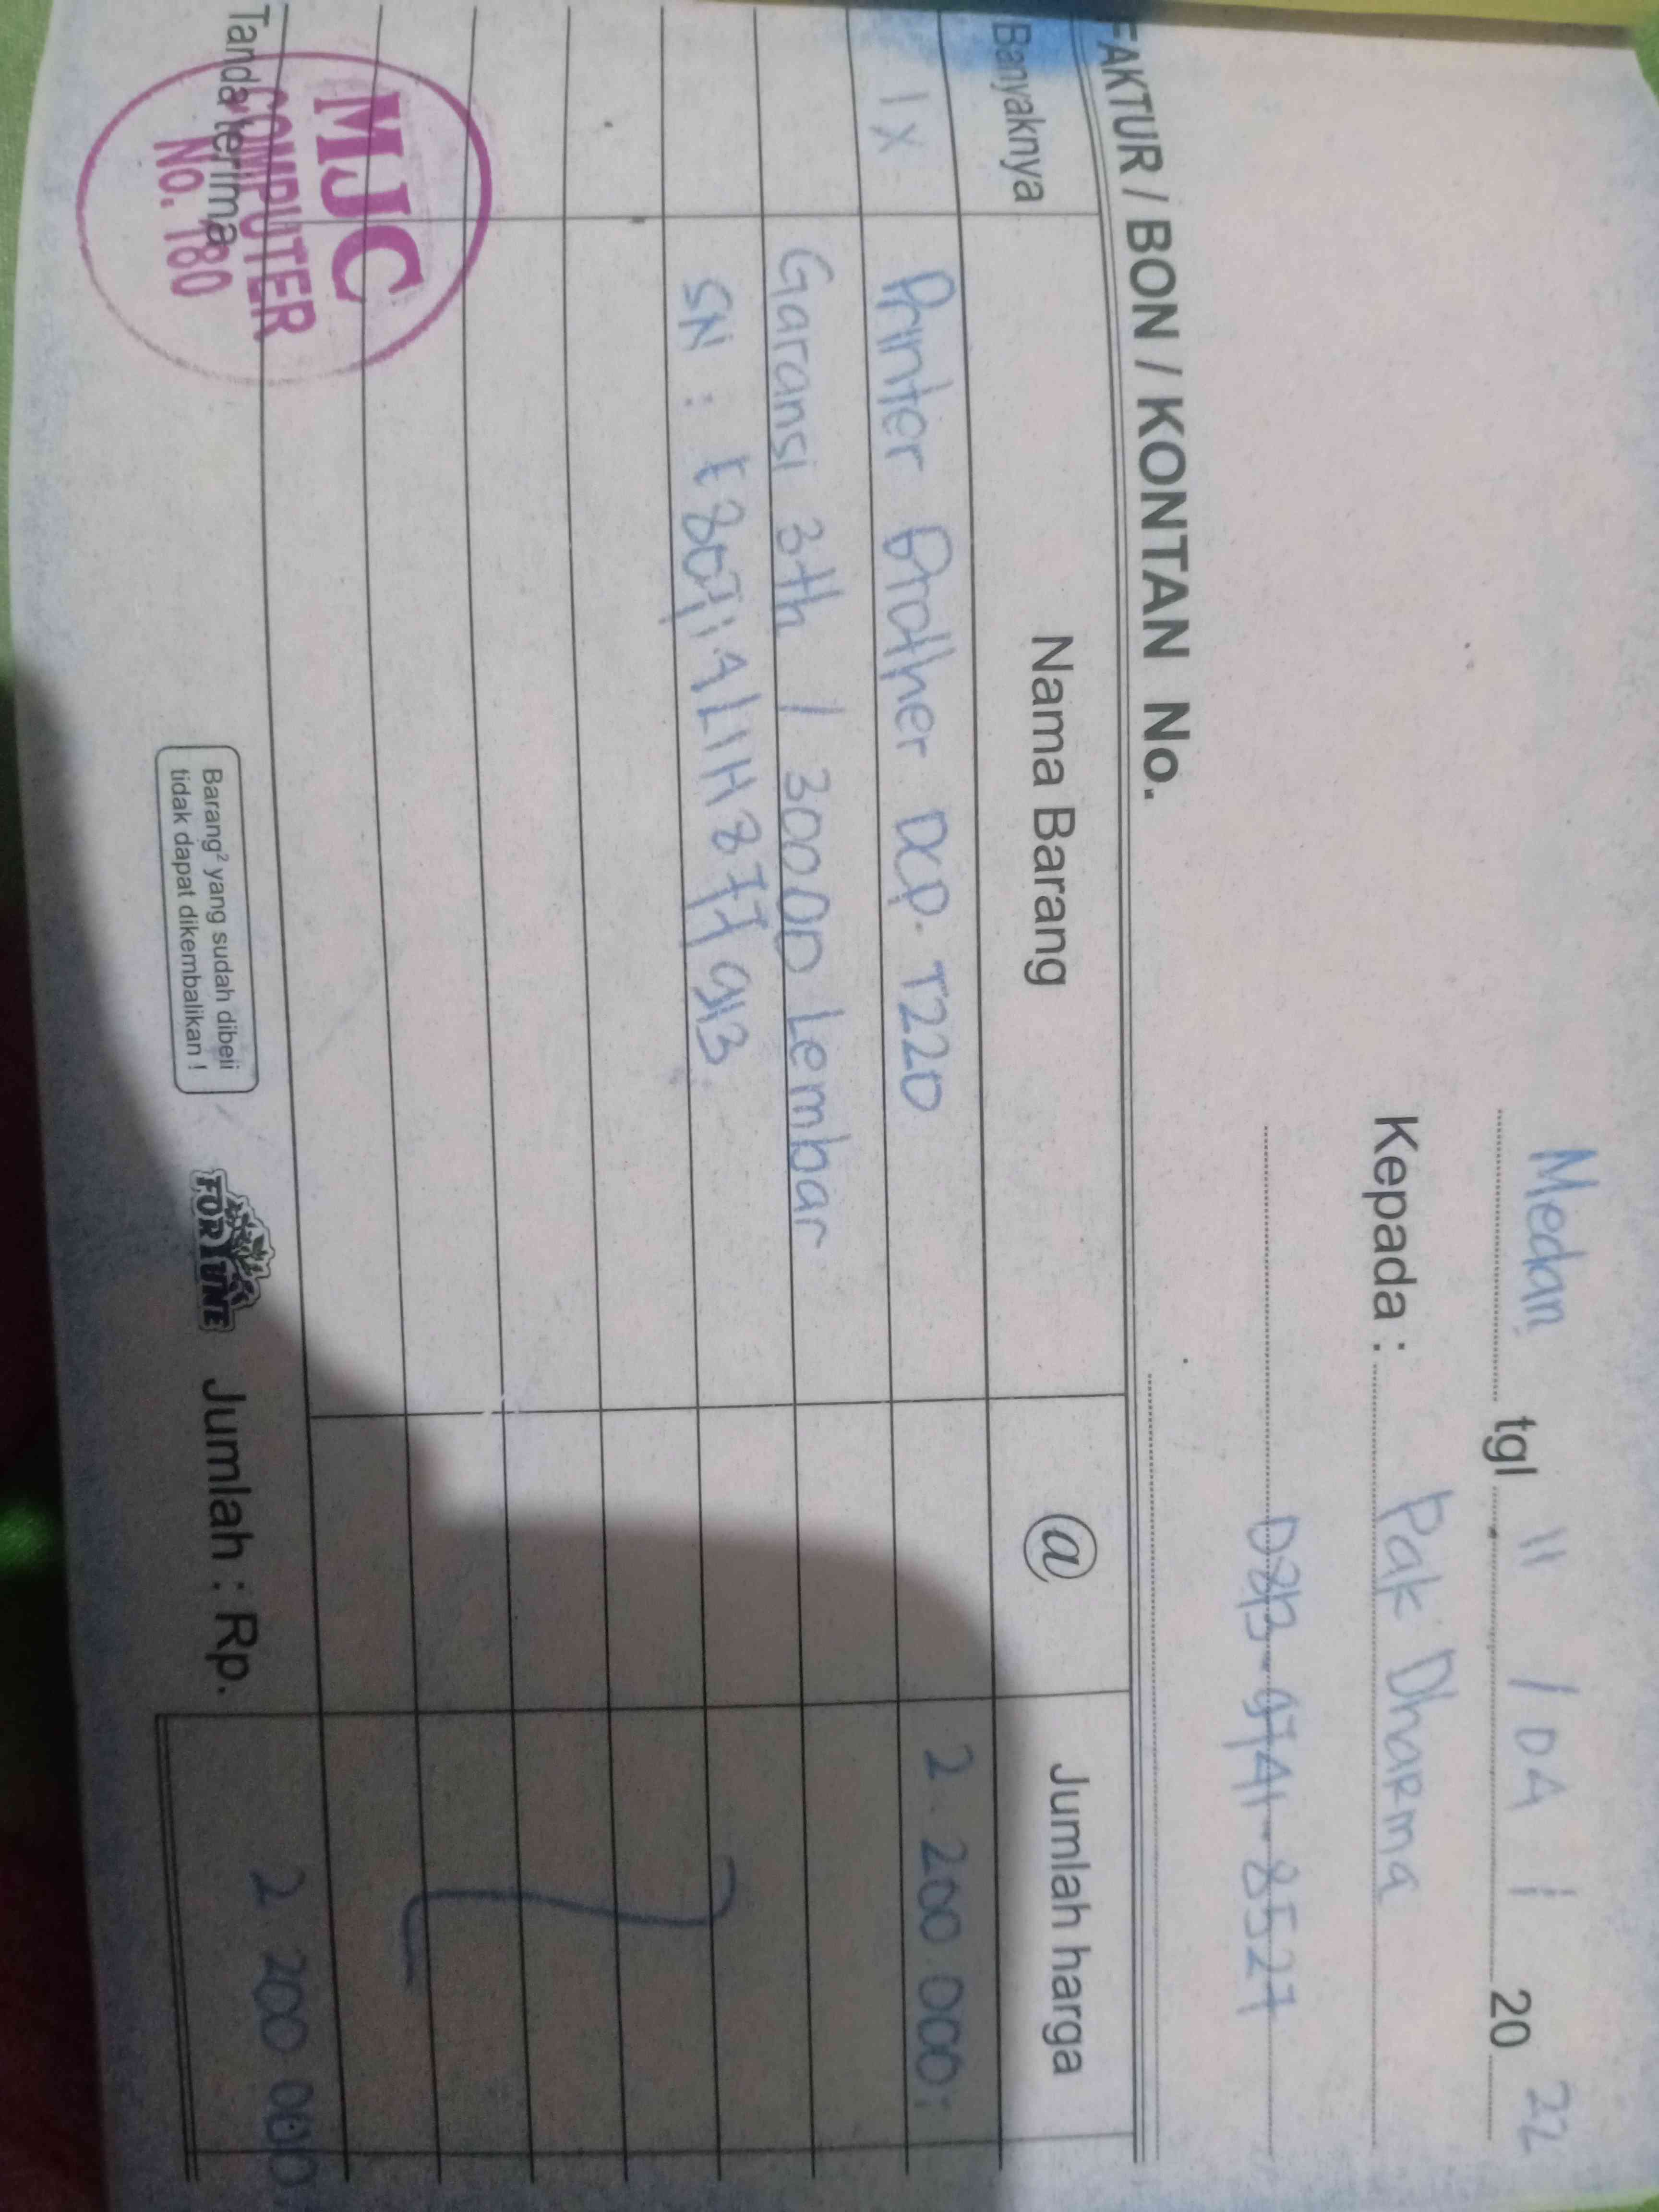 Medan tgl 11 / 04 / 20 22
Kepada : Pak Dharma
0813-9741-8527
FAKTUR / BON / KONTAN No.
Banyaknya Nama Barang @ Jumlah harga
1x Printer Brother DCP-T220 2.200.000,-
Garansi 3th / 30000 Lembar
SN :
Tanda terima
MJC
COMPUTER
No. 180
Barang² yang sudah dibeli
tidak dapat dikembalikan !
FORTUNE
Jumlah : Rp. 2.200.000